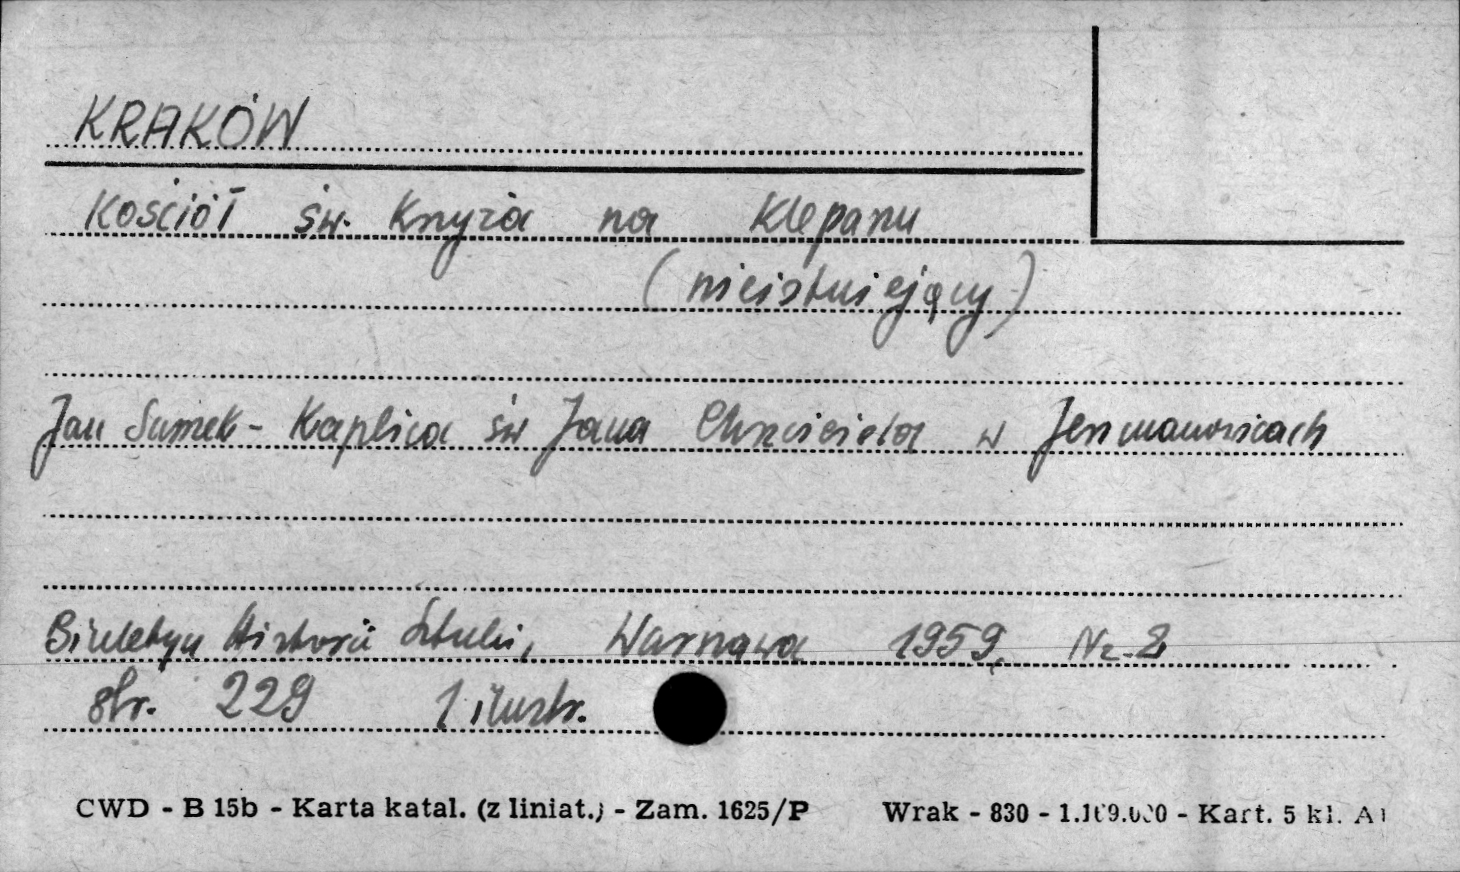 KRAKÓW
Kościół św. Krzyża na Kleparzu
(nieistniejący)
Jan Samek - Kaplica św Jana Chrzciciela w Jerzmanowicach
Biuletyn Historii Sztuki, Warszawa 1959, Nr. 2
str. 229 1 ilustr.
CWD - B 15b - Karta katal. (z liniat.) - Zam. 1625/P Wrak - 830 - 1.169.000 - Kart. 5 kl. A1